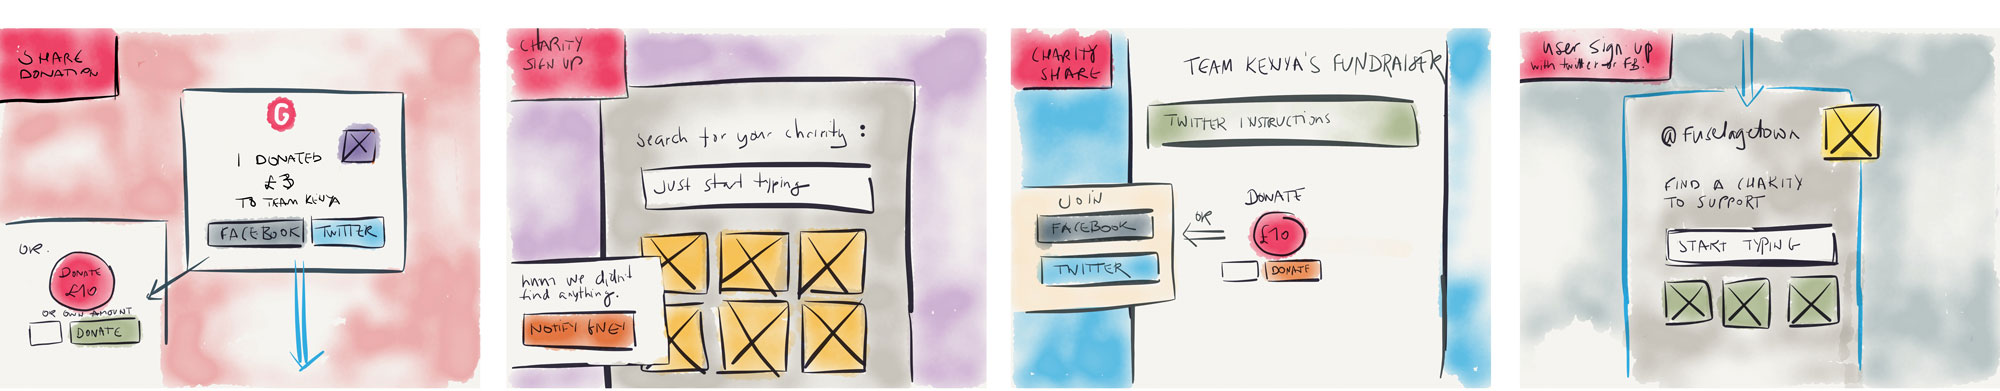 SHARE
DONATION
G
I DONATED
£3
TO TEAM KENYA
FACEBOOK
TWITTER
OR.
DONATE
£10
OR OWN AMOUNT
DONATE
CHARITY
SIGN UP
search for your charity :
Just start typing
hmm we didn't
find anything.
NOTIFY
CHARITY
SHARE
TEAM KENYA'S FUNDRAISER
TWITTER INSTRUCTIONS
JOIN
FACEBOOK
TWITTER
OR
DONATE
£10
DONATE
User Sign up
with twitter or FB.
@Fuselagetown
FIND A CHARITY
TO SUPPORT
START TYPING